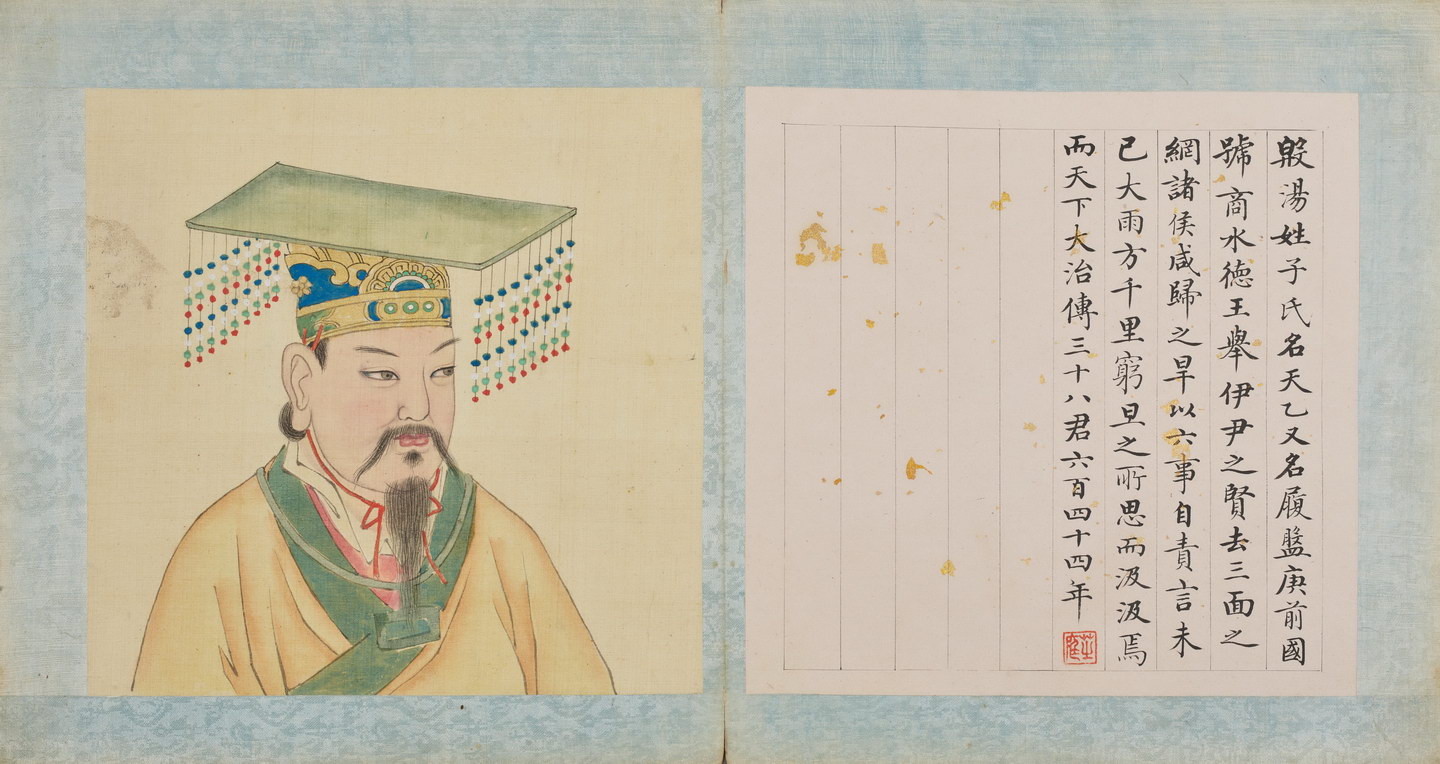 殷湯姓子氏名天乙又名履盤庚前國
號商水德王舉伊尹之賢去三面之
網諸侯咸歸之旱以六事自責言未
已大雨方千里窮旦之所思而汲汲焉
而天下大治傳三十八君六百四十四年